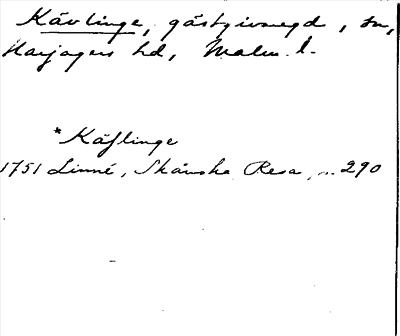 Kävlinge, gästgivaregd, sn,
Harjagers hd, Malm. l.
*Käflinge
1751 Linné, Skånska Resa, s. 290